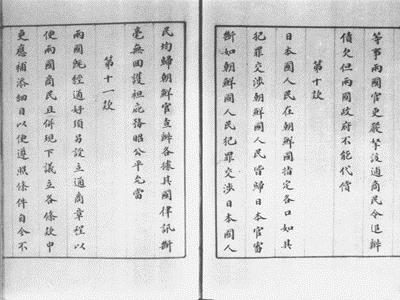 等事兩國官吏嚴拏該逋商民令追辦
債欠但兩國政府不能代償
第十款
日本國人民在朝鮮國指定各口如其
犯罪交涉朝鮮國人民皆歸日本官審
斷如朝鮮國人民犯罪交涉日本國人
民均歸朝鮮官查辦各據其國律訊斷
毫無回護袒庇務昭公平允當
第十一款
兩國既經通好須另設立通商章程以
便兩國商民且併現下議立各條款中
更應補添細目以便遵照條件自今不